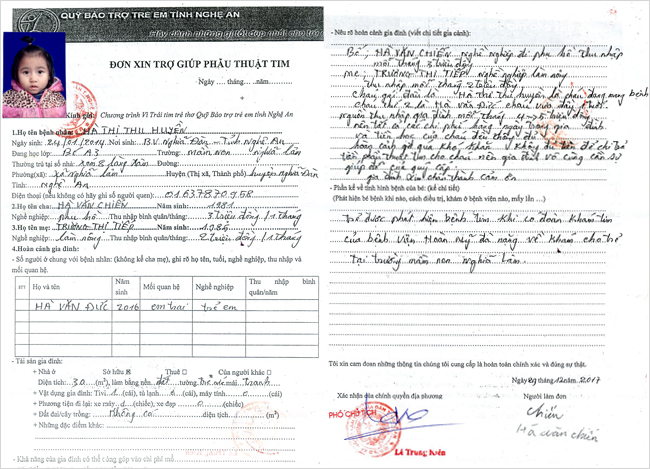 QUỸ BẢO TRỢ TRẺ EM TỈNH NGHỆ AN
Hãy dành những gì tốt đẹp nhất cho trẻ
ĐƠN XIN TRỢ GIÚP PHẪU THUẬT TIM
Ngày .... tháng.....năm............
Kính gửi: Chương trình Vì Trái tim trẻ thơ Quỹ Bảo trợ trẻ em tỉnh Nghệ An
1.Họ tên bệnh nhân: HÀ THỊ THU HUYỀN
Ngày sinh: 24/01/2014 Nơi sinh: BV Nghĩa Đàn – Tỉnh Nghệ An
Đang học lớp: BC A3 Trường: Mầm Non Nghĩa Lâm
Thường trú tại số nhà: xóm 8 làng Lâm
Phường(xã): xã Nghĩa Lâm Huyện (Thị xã, Thành phố) huyện Nghĩa Đàn
Tỉnh: Nghệ An
Điện thoại (nếu không có hãy ghi số người quen): 01637870958
2.Họ tên cha: HÀ VĂN CHIẾN Năm sinh: 1981
Nghề nghiệp: phu hồ Thu nhập bình quân/tháng: 3 triệu đồng /1 tháng
3.Họ tên mẹ: TRƯƠNG THỊ TIẾP Năm sinh: 1986
Nghề nghiệp: Làm nông Thu nhập bình quân/tháng: 2 triệu đồng /1 tháng
4.Hoàn cảnh gia đình:
- Số người ở chung với bệnh nhân: (không kể cha mẹ), ghi rõ họ tên, tuổi, nghề nghiệp, thu nhập và mối quan hệ.
STT Họ và tên Năm sinh Mối quan hệ Nghề nghiệp Thu nhập bình quân/năm
HÀ VĂN ĐỨC 2016 em trai trẻ em
- Tài sản gia đình:
+ Nhà ở Sở hữu Thuê Của người khác
Diện tích: 30 (m²), làm bằng nền đất tường, tre nứa mái tranh
+ Vật dụng gia đình: Tivi 1 (cái), tủ lạnh (cái), máy tính 0 (cái)
+ Phương tiện đi lại: xe máy (chiếc), xe đạp (chiếc)
+ Đất đai/cây trồng: Không có diện tích (m²)
+ Những đặc điểm khác:
- Khả năng của gia đình có thể đóng góp vào chi phí mổ
- Nêu rõ hoàn cảnh gia đình (viết chi tiết gia cảnh):
Bố HÀ VĂN CHIẾN nghề nghiệp đi phu hồ thu nhập
mỗi tháng 3 triệu đồng
mẹ TRƯƠNG THỊ TIẾP nghề nghiệp làm nông
thu nhập mỗi tháng 2 triệu đồng
cháu gái đầu là HÀ THỊ THU huyền là cháu đang mang bệnh
cháu thứ 2 là HÀ VĂN ĐỨC
nguồn thu nhập gia đình mỗi tháng 4 → 5 triệu đồng
- Phần kể về tình hình bệnh của bé: (kể chi tiết)
(Phát hiện bệnh khi nào, cách điều trị, khám ở bệnh viện nào, mấy lần ...)
trẻ được phát hiện bệnh tim khi có đoàn khám tim
của bệnh viện Hoàn Mỹ đà nẵng về khám cho trẻ
tại trường mầm non Nghĩa Lâm.
Tôi xin cam đoan những thông tin chúng tôi cung cấp là hoàn toàn chính xác và đúng sự thật.
Ngày 29 tháng 12 năm 2017
Xác nhận của chính quyền địa phương Người làm đơn
PHÓ CHỦ TỊCH
chiến
Hà văn chiến
Lê Trung Kiên